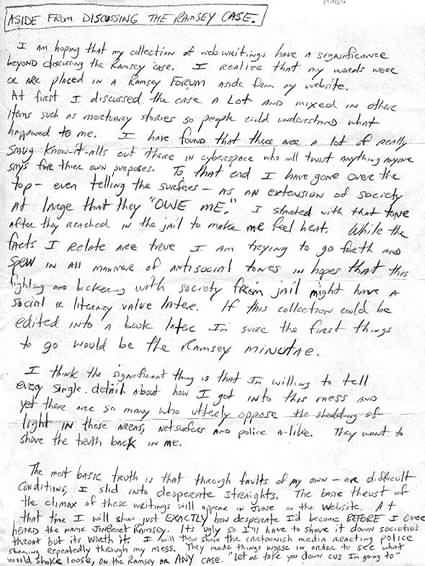 ASIDE FROM DISCUSSING THE RAMSEY CASE.
I am hoping that my collection of web writings have a significance
beyond discussing the Ramsey case. I realize that my words were
or are placed in a Ramsey Forum aside from my website.
At first I discussed the case a lot and mixed in other
items such as mortuary stories so people could understand what
happened to me. I have found that there are a lot of really
smug know-it-alls out there in cyberspace who will twist anything anyone
says for their own purposes. To that end I have gone over the
top - even telling the surfers - as an extension of society
at large that they "OWE ME." I started with that tone
after they reached in the jail to make me feel heat. While the
facts I relate are true I am trying to go forth and
spew in all manner of antisocial tones in hopes that this
fighting and bickering with society from jail might have a
social or literary value later. If this collection could be
edited into a book later I'm sure the first things
to go would be the Ramsey minutiae.
I think the significant thing is that I'm willing to tell
every single detail about how I got into this mess and
yet there are so many who utterly oppose the shedding of
light in those areas, netsurfers and police a-like. They want to
shove the truth back in me.
The most basic truth is that through faults of my own - and difficult
conditions, I slid into desperate straights. The base thrust of
the climax of these writings will appear in June on the Website. At
that time I will show just EXACTLY how desperate I'd become BEFORE I ever
heard the name JonBenet Ramsey. Its ugly so I'll have to shove it down societies
throat but its worth it. I will then show the cartoonish media reacting police
repeatedly through my mess. They made things worse in order to see what
would shake loose, on the Ramsey or ANY case. "let me take you down cuz I'm going to"